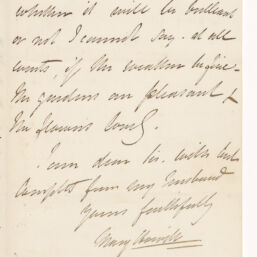 whether it will be brilliant
or not I cannot say. at all
events, if the weather be fine -
the gardens are pleasant &
the flowers lovely.
I am dear Sir. with best
Complts from my Husband
yours faithfully
Mary